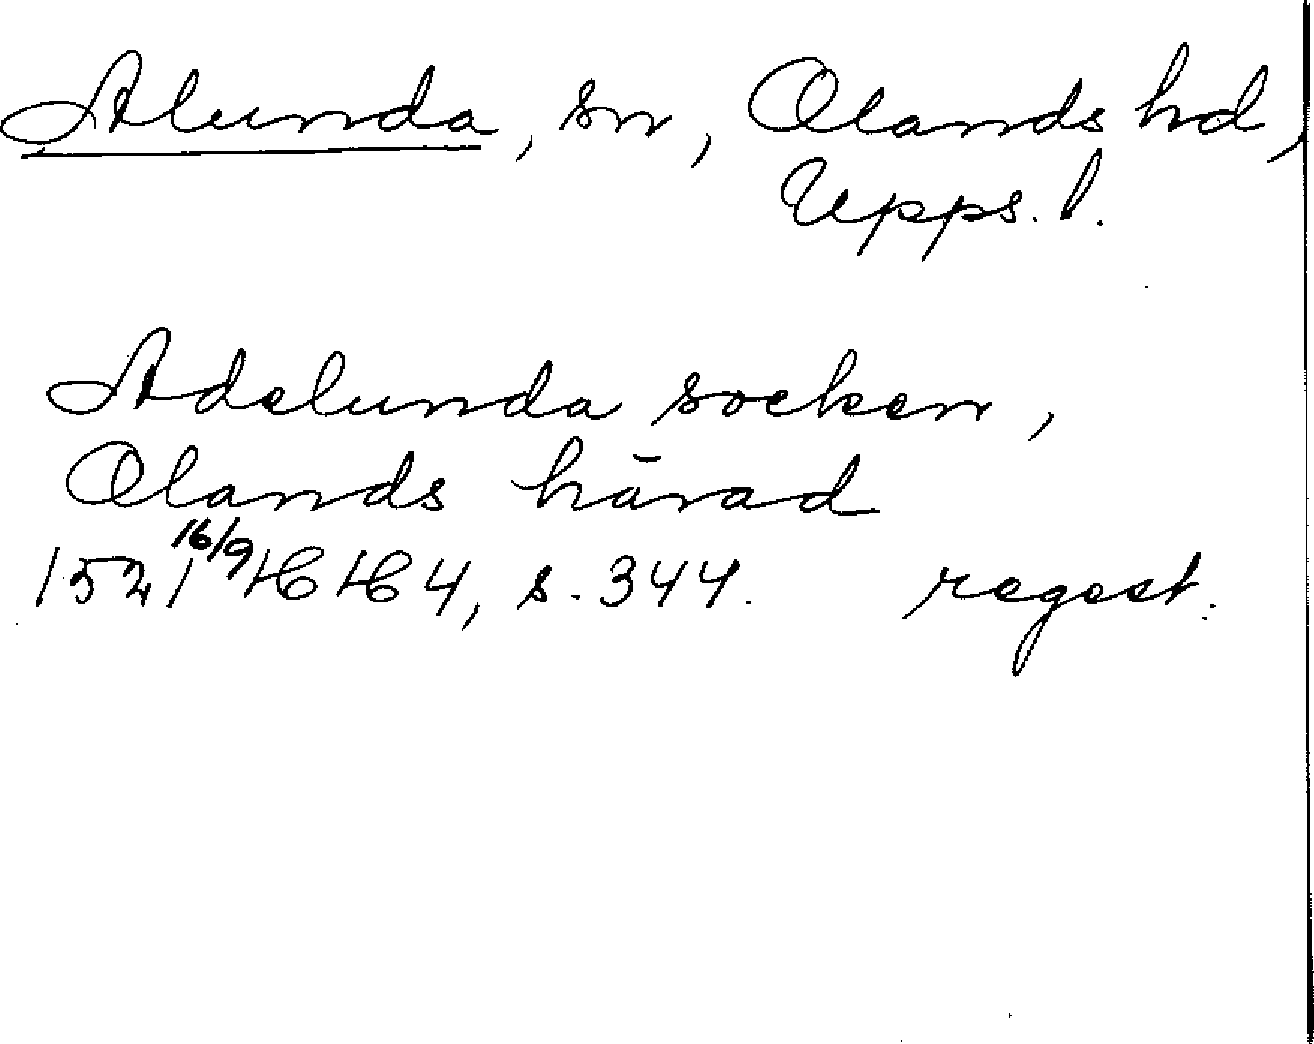 Alunda, sn, Olands hd,
Upps. l.
Adelunda socken,
Olands härad
1521 16/9 HH 4, s. 344. regest.